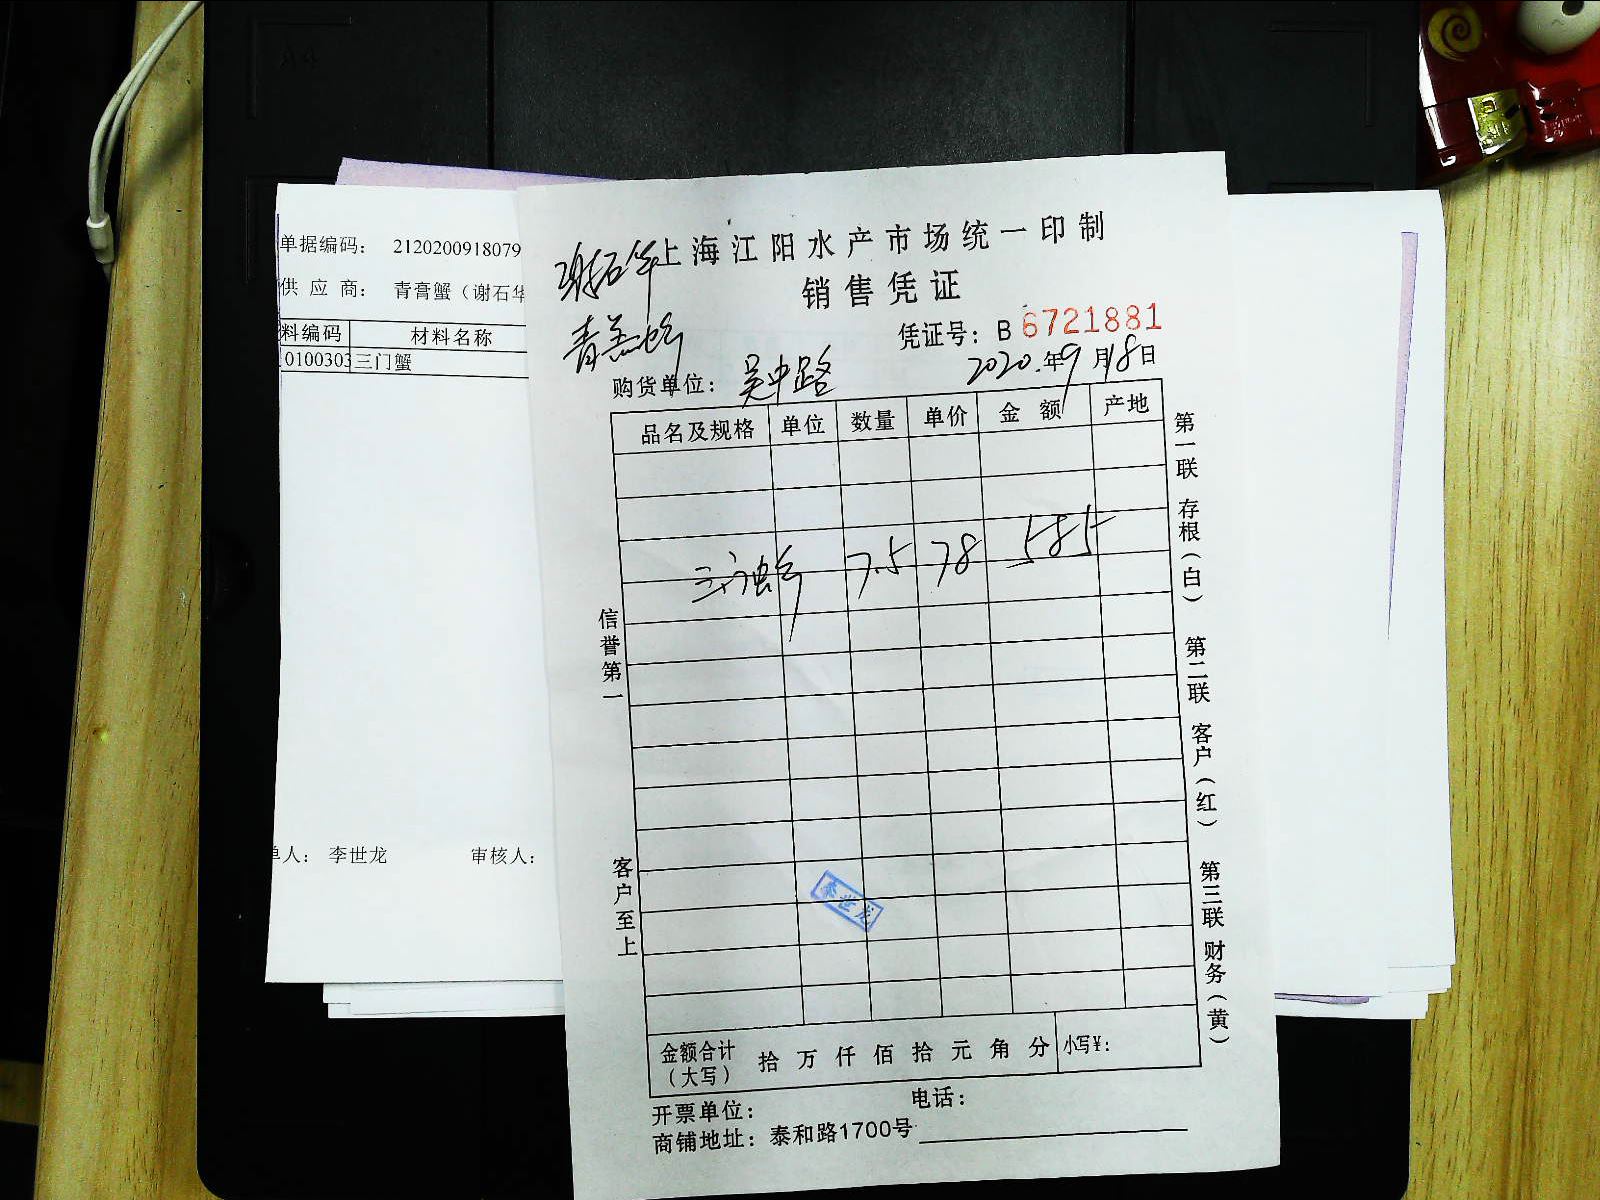 单据编码： 2120200918079
供 应 商： 青膏蟹（谢石华
料编码 材料名称
0100303 三门蟹
单人： 李世龙 审核人：
谢石华
青羔蟹
上海江阳水产市场统一印制
销售凭证
凭证号：B 6721881
购货单位：吴中路 2020.年9月18日
品名及规格 单位 数量 单价 金额 产地
三门蟹 7.5 78 585
信誉第一
客户至上
第一联 存根（白） 第二联 客户（红） 第三联 财务（黄）
李世龙
金额合计（大写） 拾 万 仟 佰 拾 元 角 分 小写¥：
开票单位： 电话：
商铺地址：泰和路1700号